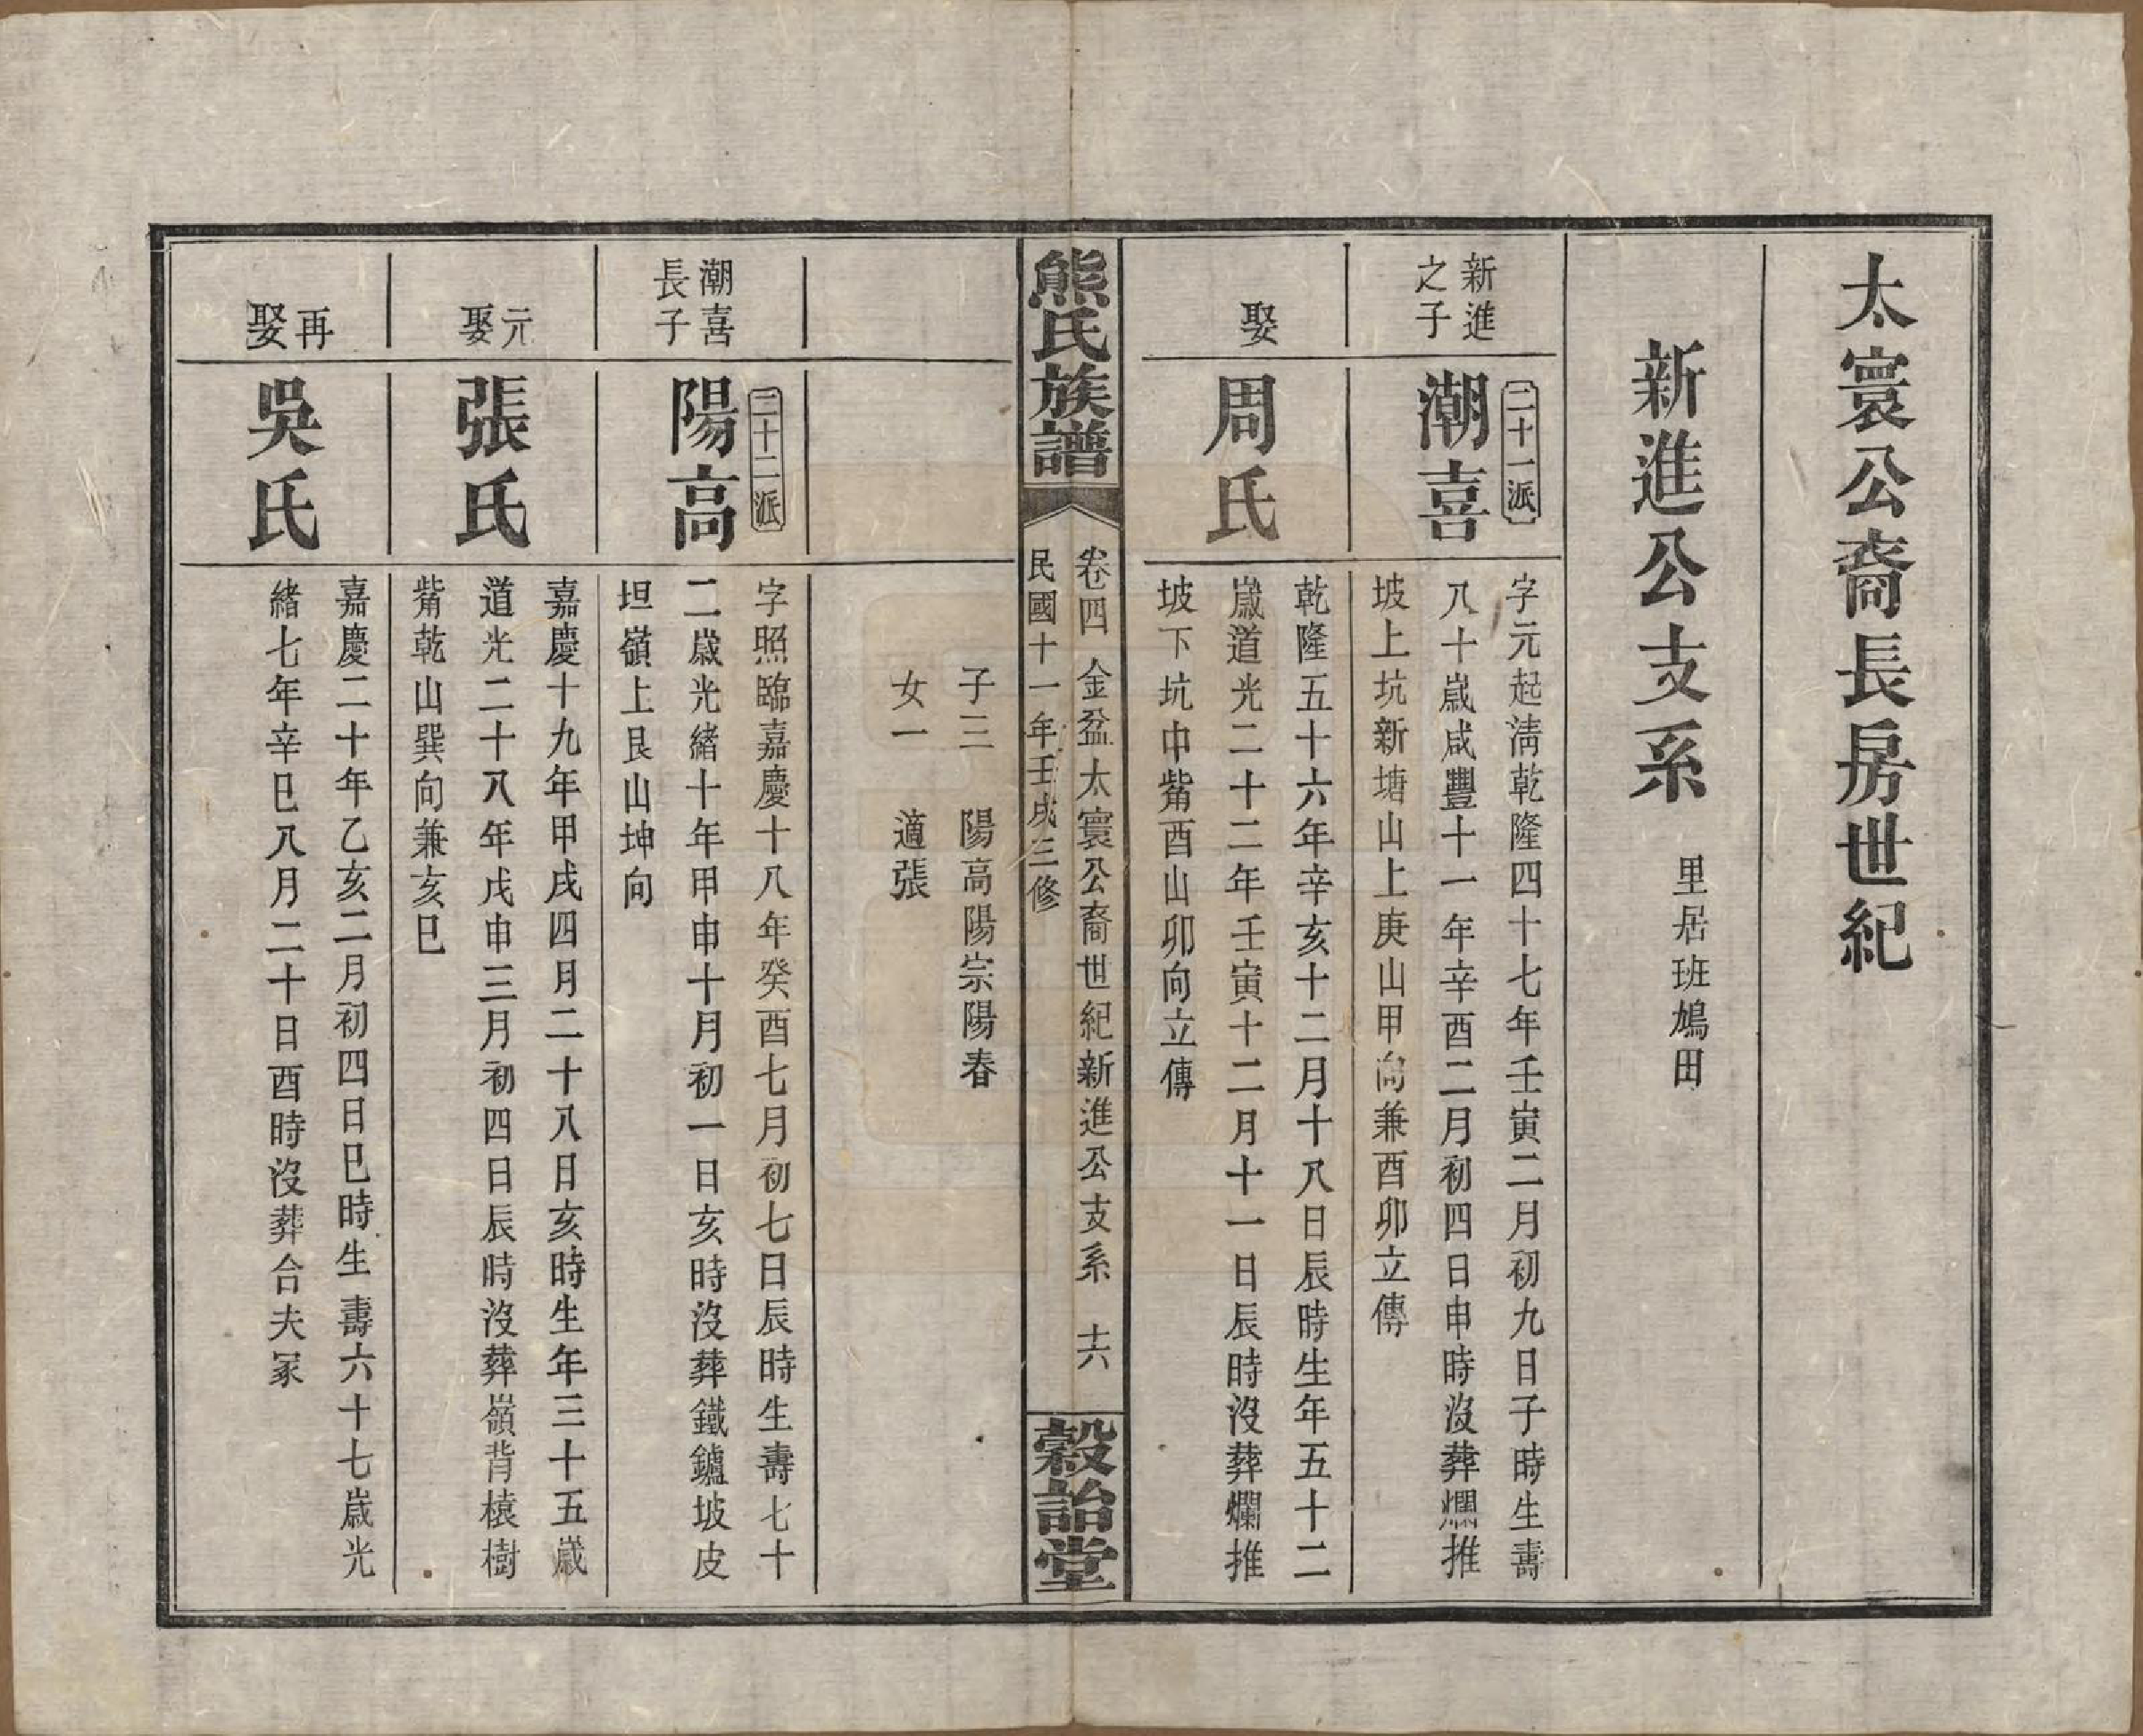 太寰公裔長房世紀
新進公支系
里居班鳩田
新進
之子
二十一派
潮喜
字元起淸乾隆四十七年壬寅二月初九日子時生壽
八十歲咸豐十一年辛酉二月初四日申時沒葬爛推
坡上坑新塘山上庚山甲向兼酉卯立傳
娶
周氏
乾隆五十六年辛亥十二月十八日辰時生年五十二
歲道光二十二年壬寅十二月十一日辰時沒葬爛推
坡下坑中觜酉山卯向立傳
熊氏族譜
卷四 金盆太寰公裔世紀新進公支系 十六
民國十一年壬戌三修
穀詒堂
子三 陽高陽宗陽春
女一 適張
潮喜
長子
二十二派
陽高
字照臨嘉慶十八年癸酉七月初七日辰時生壽七十
二歲光緒十年甲申十月初一日亥時沒葬鐵鑪坡皮
坦嶺上艮山坤向
元
娶
張氏
嘉慶十九年甲戌四月二十八日亥時生年三十五歲
道光二十八年戊申三月初四日辰時沒葬嶺背榬樹
觜乾山巽向兼亥巳
再
娶
吳氏
嘉慶二十年乙亥二月初四日巳時生壽六十七歲光
緒七年辛巳八月二十日酉時沒葬合夫冢